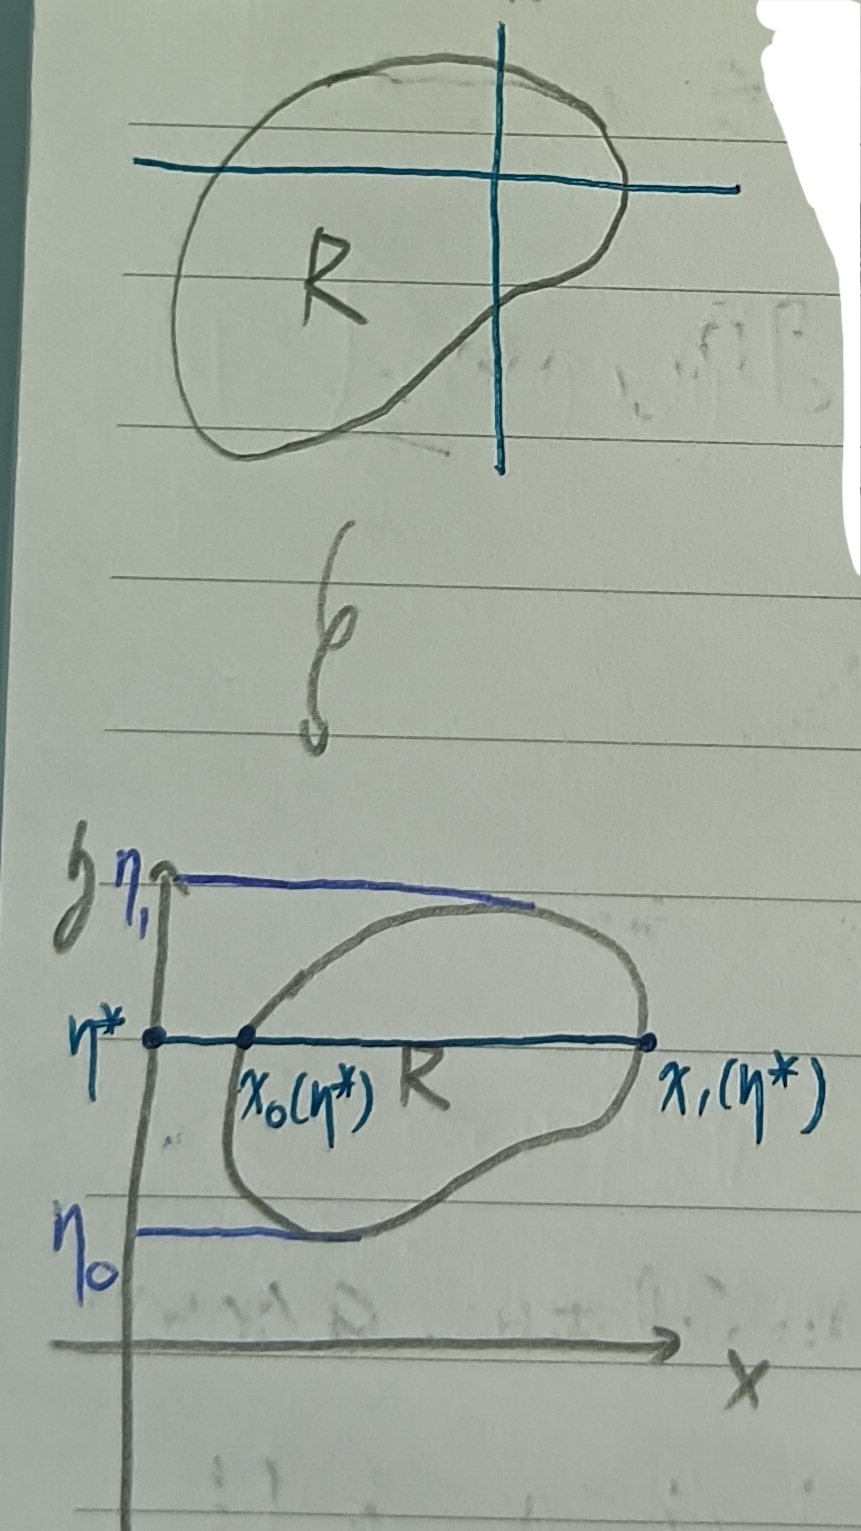 R
y η₁
η*
x₀(η*) R x₁(η*)
η₀
x